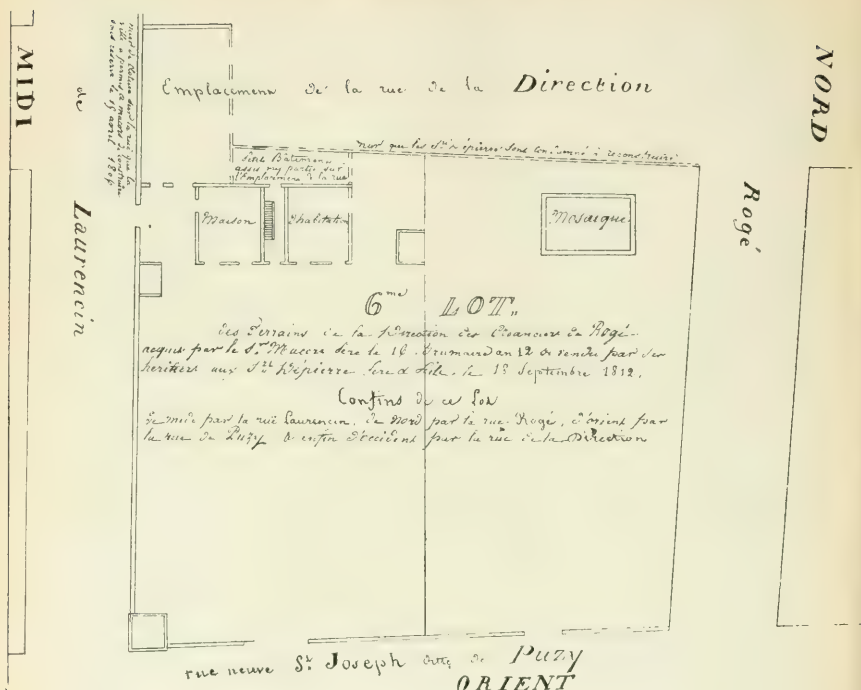 MIDI
NORD
Emplacement de la rue de la Direction
de
Laurencin
Rogé
mur de clôture sur la rue que la
ville a permis à macors de construire
sous réserve le 15 avril 1806
mur que les Srs dépierre sont condamné à reconstruire
Petit Bâtiment
assis en partie sur
l'Emplacement de la rue
Maison d'habitation
Mosaique
6me LOT.
des Terrains de la Direction des Créanciers de Rogé
acquis par le Sr Macors Père le 16 Brumaire an 12 & vendu par ses
heritiers aux Srs Dépierre Pere & Fils, le 13 Septembre 1812.
Confins de ce Lot
de midi par la rue Laurencin, de Nord par la rue Rogé, d'orient par
la rue de Puzy & enfin d'occident par la rue de la Direction
rue neuve St Joseph ditte de Puzy
ORIENT